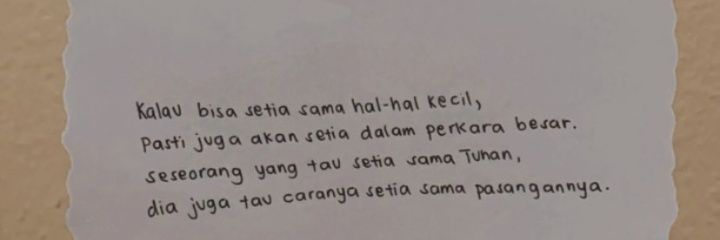 Kalau bisa setia sama hal-hal kecil,
Pasti juga akan setia dalam perkara besar.
seseorang yang tau setia sama Tuhan,
dia juga tau caranya setia sama pasangannya.